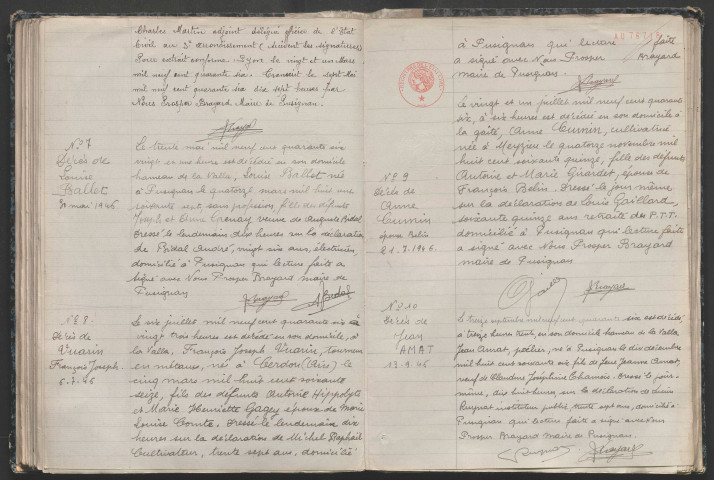 Charles Martin adjoint délégué officier de l'Etat
Civil au 3e arrondissement (suivent les signatures)
Pour extrait conforme. Lyon le vingt et un Mars
mil neuf cent quarante six. Transcrit le sept Mai
mil neuf cent quarante six dix sept heures par
Nous Prosper Brayard Maire de Pusignan.
N° 7
Décès de
Louise
Ballot
31 mai 1946
Le trente mai mil neuf cent quarante six
vingt et une heures est décédée en son domicile
hameau de la Valla, Louise Ballot née
à Pusignan le quatorze mars mil huit cent
soixante sept, sans profession, fille des défunts
Joseph et Anne veuve de Auguste Bidal
Dressé le lendemain dix heures sur la déclaration
de Bidal André, vingt six ans, électricien,
domicilié à Pusignan qui lecture faite a
signé avec Nous Prosper Brayard maire de
Pusignan
N° 8
Décès de
Vuarin
François Joseph
6-7-46
Le six juillet mil neuf cent quarante six à
vingt trois heures est décédé en son domicile, à
la Valla, François Joseph Vuarin, tourneur
en métaux, né à Cerdon (Ain) le
cinq mars mil huit cent soixante
seize, fils des défunts Antoine Hippolyte
et Marie Henriette Gagey époux de Marie
Louise Comte. Dressé le lendemain dix
heures sur la déclaration de Michel Raphaël
Cultivateur, trente sept ans, domicilié
AO 78718
à Pusignan qui lecture faite
a signé avec Nous Prosper Brayard
maire de Pusignan.
N° 9
Décès de
Anne
Cumin
épouse Belin
21.7.1946
Le vingt et un juillet mil neuf cent quarante
six, à six heures est décédée en son domicile à
la gaité, Anne Cumin, cultivatrice
née à Meyzieu le quatorze novembre mil
huit cent soixante quinze, fille des défunts
Antoine et Marie Girardet, épouse de
François Belin. Dressé le jour même
sur la déclaration de Louis Gaillard,
soixante quinze ans retraité des P.T.T.
domicilié à Pusignan qui lecture faite
a signé avec Nous Prosper Brayard
maire de Pusignan
N° 10
Décès de
Jean
AMAT
13-9-46
Le treize septembre mil neuf cent quarante six est décédé
à treize heures trente, en son domicile hameau de la Valla
Jean Amat, poëlier, né à Pusignan le dix décembre
mil huit cent soixante six, fils de feue Jeanne Amat,
veuf de Claudine Joséphine Chamois. Dressé le jour
même, dix huit heures, sur la déclaration de Lucien
instituteur public, trente sept ans, domicilié à
Pusignan qui lecture faite a signé avec Nous
Prosper Brayard Maire de Pusignan.